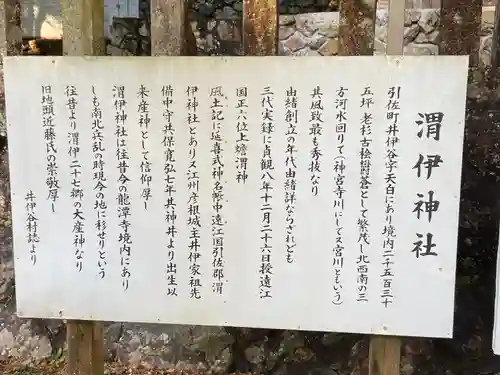 渭伊神社
引佐町井伊谷字天白にあり境内二千五百三十
五坪、老杉古桧樹蒼として繁茂、北西南の三
方河水回りて(神宮寺川にしてス宮川ともいう)
其風致最も秀抜なり
由緒創立の年代由緒詳ならされども
三代実録に貞観八年十二月二十六日授遠江
国正六位上蟾渭神
風土記に延喜式神名帳中遠江国引佐郡渭
伊神社とありス江州彦根城主井伊家祖先
備中守共保寛弘七年其神井より出生以
来産神として信仰厚し
渭伊神社は往昔今の龍潭寺境内にあり
しも南北兵乱の時現今の地に移せりという
往昔より渭伊二十七郷の大産神なり
旧地頭近藤氏の崇敬厚し
井伊谷村誌より